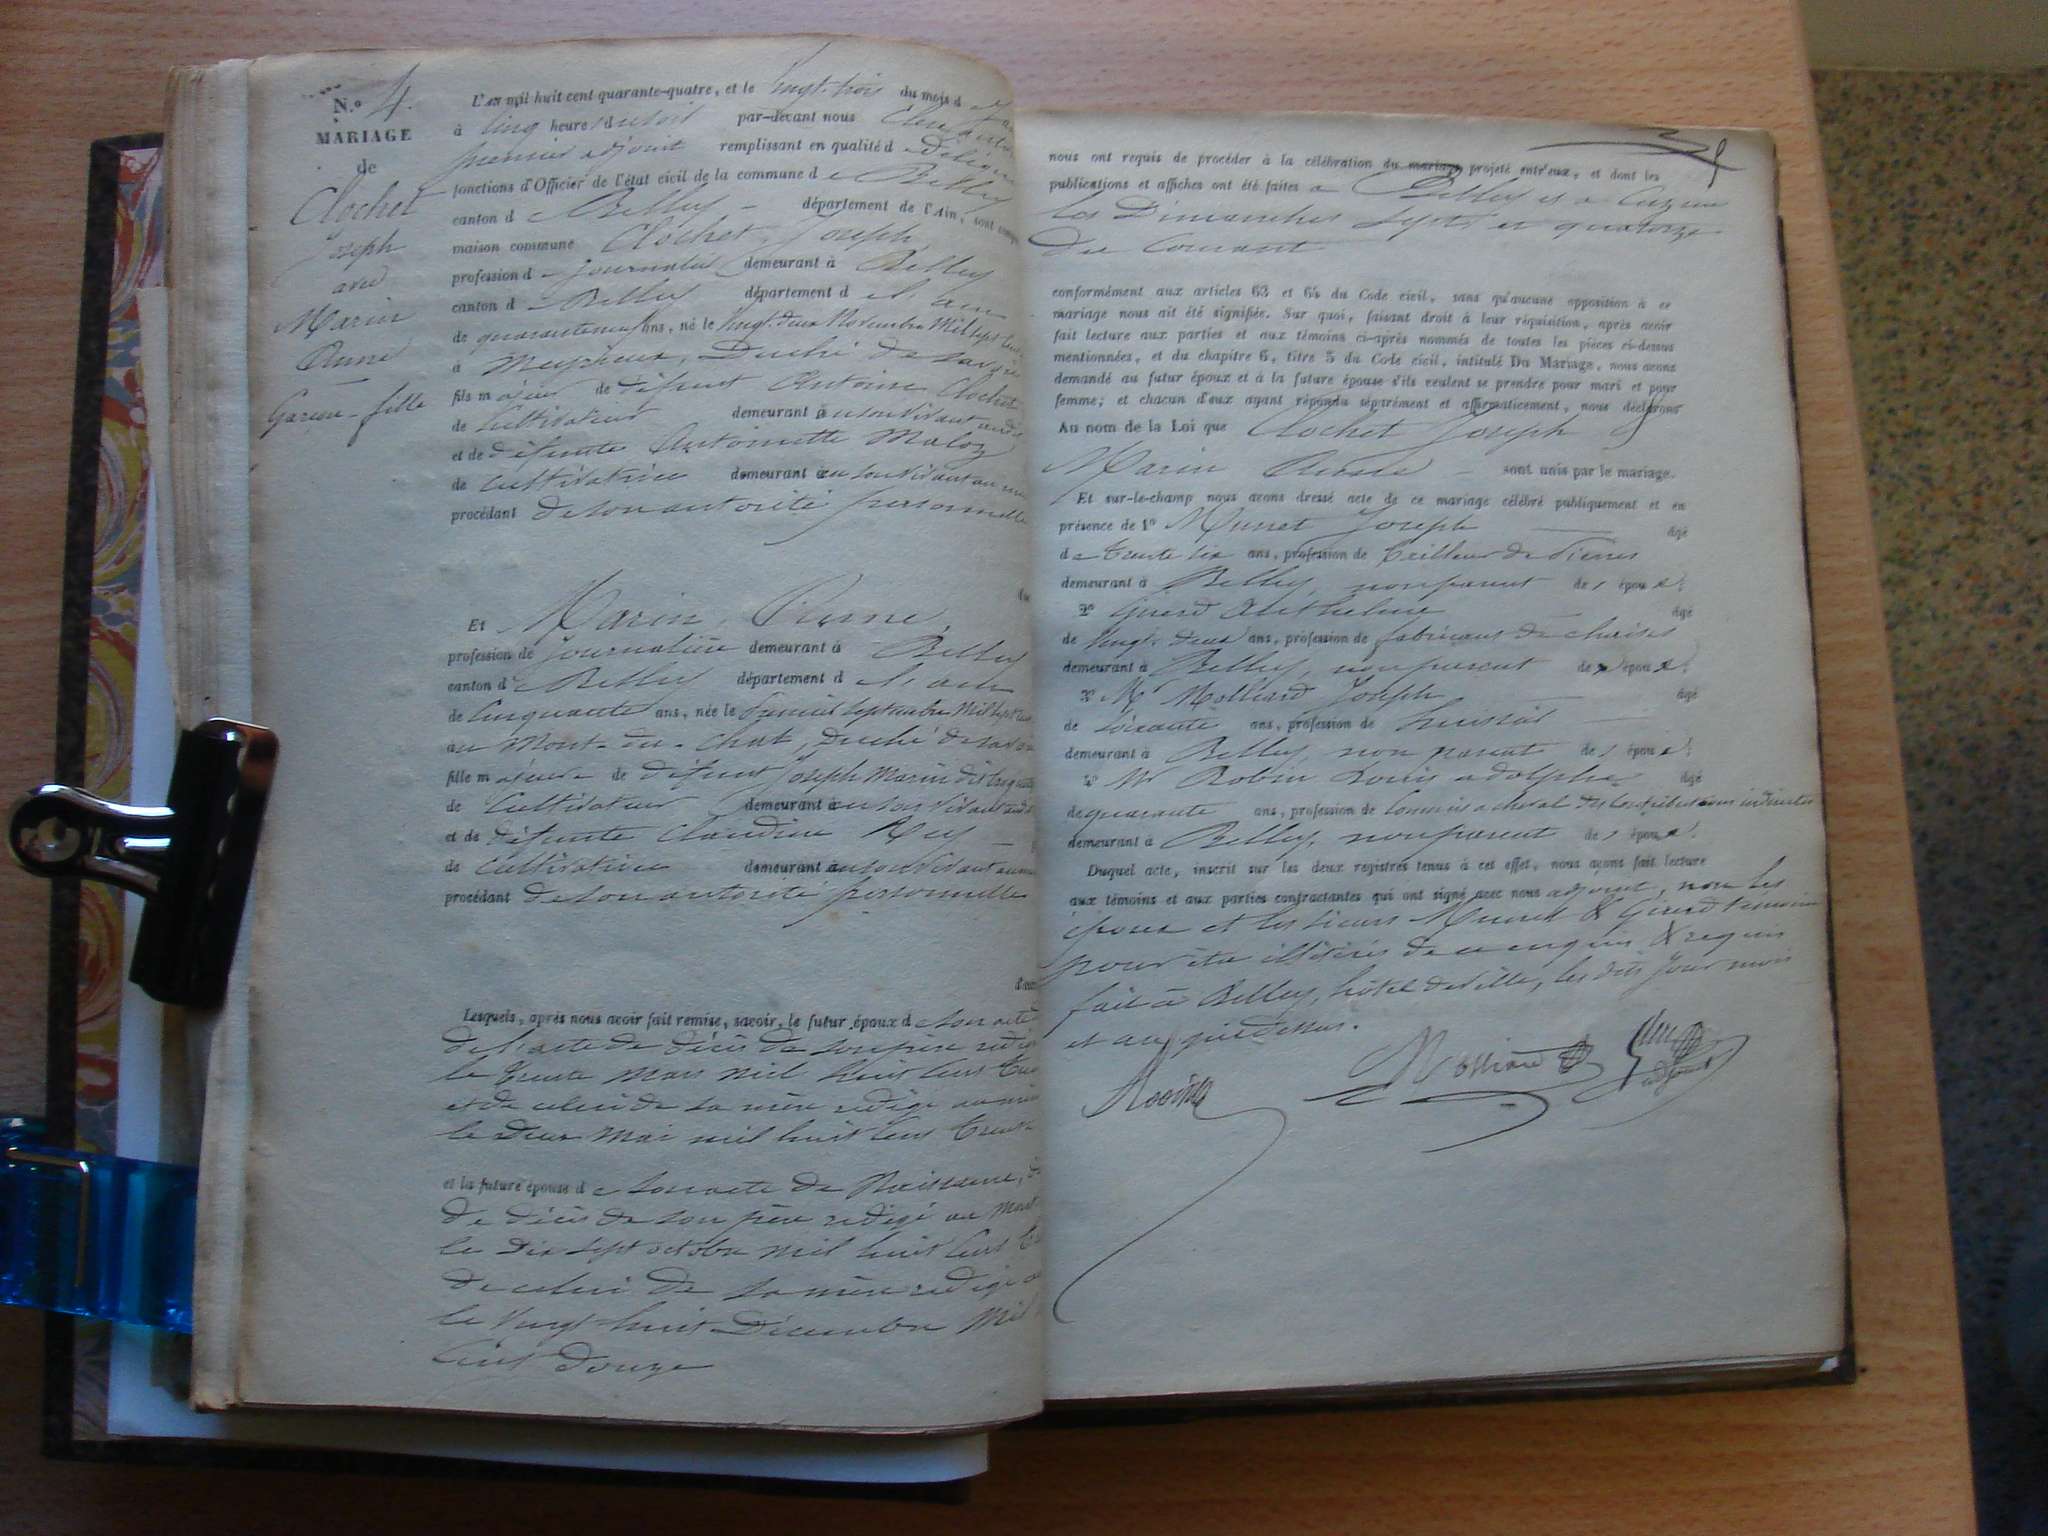 N.o 4.
MARIAGE
de
Clochet
Joseph
avec
Marin
Anne
Garçon - fille
L'an mil huit cent quarante-quatre, et le Vingt-trois du mois d
à Cinq heures du soir par-devant nous
premier adjoint remplissant en qualité de délégué
fonctions d'Officier de l'état civil de la commune de Belley
canton de Belley département de l'Ain, sont
maison commune Clochet, Joseph,
profession de journalier demeurant à Belley
canton de Belley département de l'ain
de quarante neuf ans, né le Vingt-deux Novembre Mil sept cent
à Meyrieux, Duché de Savoie
fils majeur de défunt Antoine Clochet
de Cultivateur demeurant en son vivant
et de défunte Antoinette
de Cultivatrice demeurant en son vivant au
procédant de son autorité personnelle
Et Marin, Anne,
profession de journalière demeurant à Belley
canton de Belley département de l'ain
de Cinquante ans, née le septembre Mil sept cent
au Mont-du-Chat, Duché de Savoie
fille majeure de défunt Joseph Marin dit
de Cultivateur demeurant en son vivant
et de défunte Claudine Rey
de Cultivatrice demeurant en son vivant au
procédant de son autorité personnelle
Lesquels, après nous avoir fait remise, savoir, le futur époux de son acte
de l'acte de décès de son père rédigé
le trente mars mil huit cent
et de celui de sa mère rédigé au
le deux Mai mil huit cent trente
et la future épouse de son acte de Naissance,
de décès de son père rédigé au Mont
le dix sept octobre mil huit cent
de celui de sa mère rédigé
le Vingt huit Décembre Mil
Cent douze
nous ont requis de procéder à la célébration du mariage projeté entr'eux, et dont les
publications et affiches ont été faites à Belley et à
les Dimanches Sept et quatorze
du Courant
conformément aux articles 63 et 64 du Code civil, sans qu'aucune opposition à ce
mariage nous ait été signifiée. Sur quoi, faisant droit à leur réquisition, après avoir
fait lecture aux parties et aux témoins ci-après nommés de toutes les pièces ci-dessus
mentionnées, et du chapitre 6, titre 5 du Code civil, intitulé Du Mariage, nous avons
demandé au futur époux et à la future épouse s'ils veulent se prendre pour mari et pour
femme; et chacun d'eux ayant répondu séparément et affirmativement, nous déclarons
Au nom de la Loi que Clochet Joseph &
Marin Anne sont unis par le mariage.
Et sur-le-champ nous avons dressé acte de ce mariage célébré publiquement et en
présence de 1º Munet Joseph âgé
de trente six ans, profession de tailleur de Pierres
demeurant à Belley, non parent des époux;
2º Girerd Anthelme âgé
de Vingt-deux ans, profession de fabricant de chaises
demeurant à Belley, non parent des époux;
3º Mr Molliard Joseph âgé
de soixante ans, profession de huissier
demeurant à Belley, non parent des époux;
4º Mr Robin Louis adolphe âgé
de quarante ans, profession de Commis à cheval des Contributions indirectes
demeurant à Belley, non parent des époux.
Duquel acte, inscrit sur les deux registres tenus à cet effet, nous avons fait lecture
aux témoins et aux parties contractantes qui ont signé avec nous adjoint, non les
époux et les sieurs Munet & Girerd témoins
pour être illitérés de ce enquis & requis
fait à Belley, hôtel de Ville, les dits jour mois
et an que dessus.
Molliard
adjoint